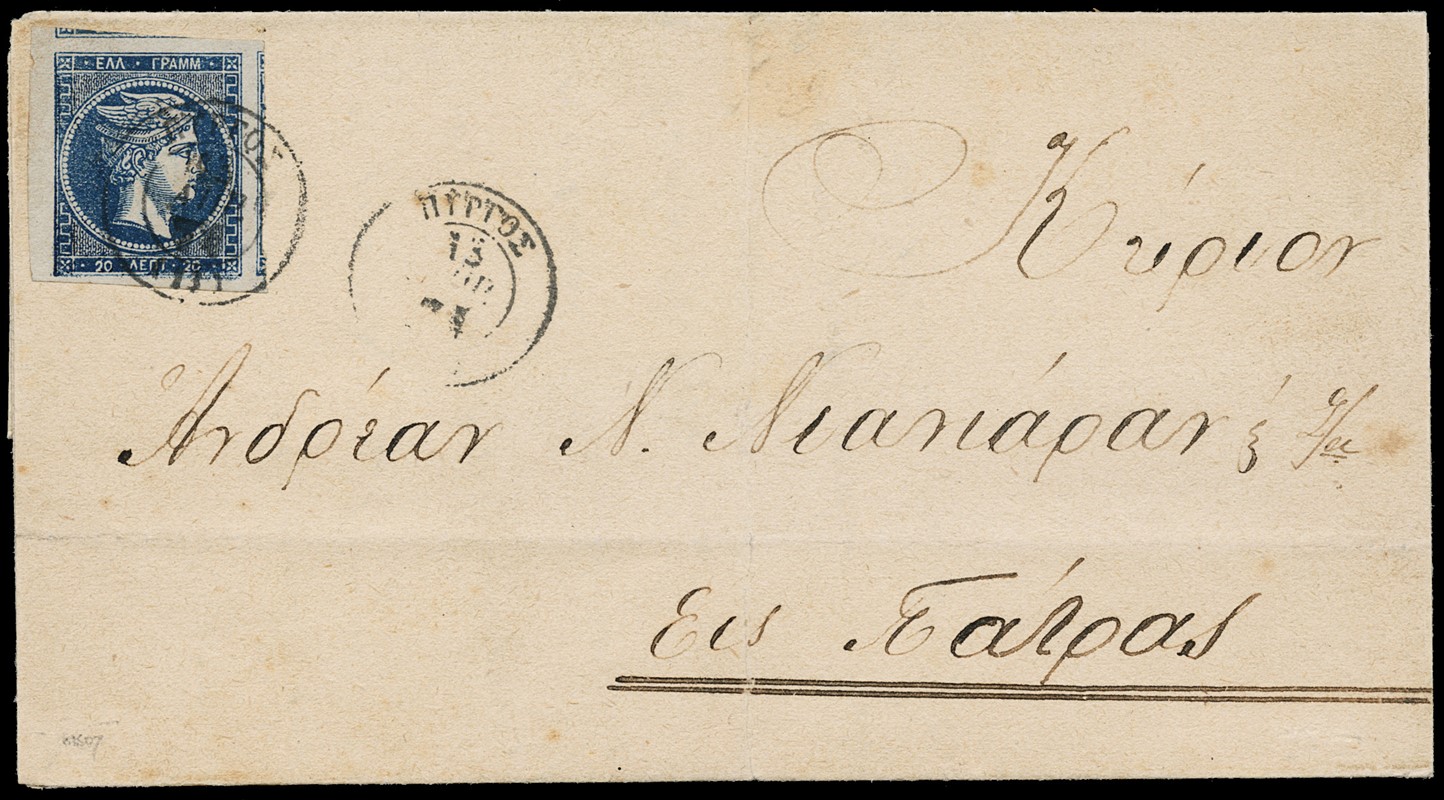 ΕΛΛ · ΓΡΑΜΜ
20 ΛΕΠΤ 20
ΠΥΡΓΟΣ
13
Κύριον
Ἀνδρέαν Ν.
Εις Πάτρας